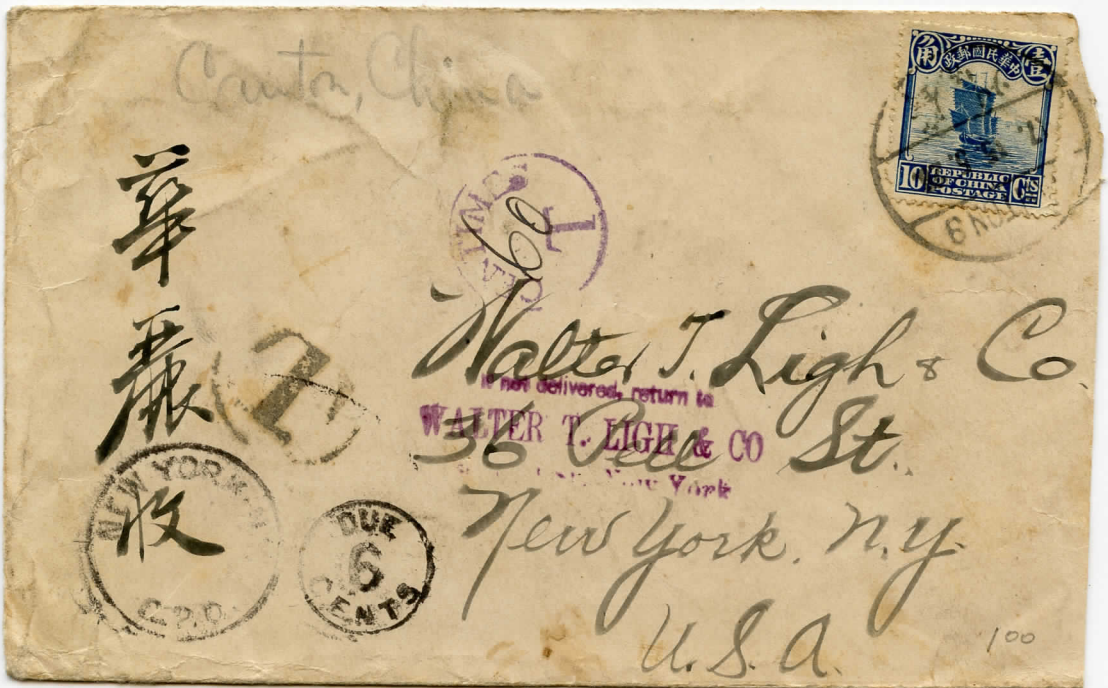 Canton, China
角 中華民國郵政 壹
10 REPUBLIC OF CHINA POSTAGE CTS
CENTIMES
T
90
華麗收
T
Walter T. Ligh & Co.
If not delivered, return to
WALTER T. LIGH & CO
New York
36 Pell St.
New York, N.Y.
U.S.A.
NEW YORK
G.P.O.
DUE
6
CENTS
100